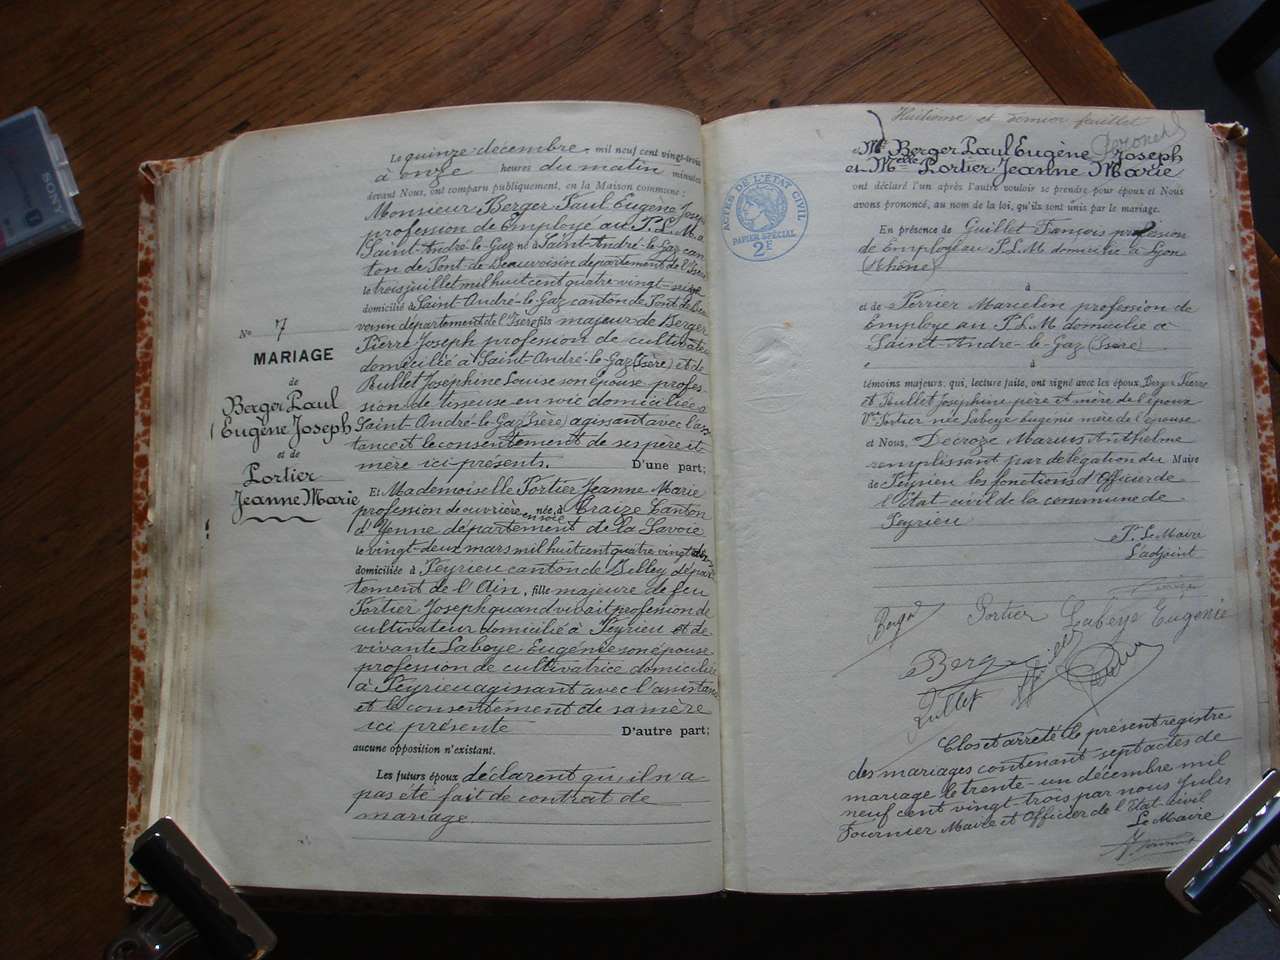 SONY
No 7
MARIAGE
de
Berger Paul
Eugène Joseph
et de
Portier
Jeanne Marie
Le quinze décembre, mil neuf cent vingt-trois
à onze heures du matin minutes
devant Nous, ont comparu publiquement, en la Maison commune :
Monsieur Berger Paul Eugène Joseph
profession de Employé au P.L.M. à
Saint-André-le-Gaz né à Saint-André-le-Gaz can
ton de Pont-de-Beauvoisin département de l'Isère
le trois juillet mil huit cent quatre vingt-
domicilié à Saint-André-le-Gaz canton de Pont de Beau
voisin département de l'Isère fils majeur de Berger
Pierre Joseph profession de cultivateur
domicilié à Saint-André-le-Gaz (Isère) et de
Rullet Josephine Louise son épouse profes-
sion de tisseuse en vie domiciliés
Saint-André-le-Gaz (Isère) agissant avec l'assis
tance et le consentement de ses père et
mère ici présents. D'une part;
Et Mademoiselle Portier Jeanne Marie
profession de ouvrière née à Traize Canton
en soie
d'Yenne département de la Savoie
le vingt-deux mars mil huit cent quatre vingt
domiciliée à Peyrieu canton de Belley dépar
tement de l'Ain, fille majeure de feu
Portier Joseph quand vivait profession de
cultivateur domicilié à Peyrieu et de
vivante Laboye Eugénie son épouse
profession de cultivatrice domiciliée
à Peyrieu agissant avec l'assistance
et le consentement de sa mère
ici présente D'autre part;
aucune opposition n'existant.
Les futurs époux déclarent qu'il n'a
pas été fait de contrat de
mariage
Huitième et dernier feuillet
ACTES DE L'ETAT CIVIL
PAPIER SPECIAL
2F
Mr Berger Paul Eugène Joseph
et Melle Portier Jeanne Marie
ont déclaré l'un après l'autre vouloir se prendre pour époux et Nous
avons prononcé, au nom de la loi, qu'ils sont unis par le mariage.
En présence de Guillet François profession
de Employé au P.L.M domicilié à Lyon
(Rhône)
à
et de Perrier Marcelin profession de
Employé au P.L.M domicilié à
Saint-André-le-Gaz (Isère)
témoins majeurs; qui, lecture faite, ont signé avec les époux, Berger Pierre
et Rullet Joséphine père et mère de l'époux
Vve Portier née Laboye Eugénie mère de l'épouse
et Nous, Décroze Marius Anthelme
remplissant par délégation du Maire
de Peyrieu les fonctions d'Officier de
l'Etat-civil de la commune de
Peyrieu
P. Le Maire
L'adjoint
Berger Portier Laboye Eugénie
Berger
Rullet
Clos et arrêté le présent registre
des mariages contenant sept actes de
mariage le trente-un décembre mil
neuf cent vingt-trois par nous Jules
Fournier Maire et Officier de l'Etat-civil
Le Maire
J. Fournier